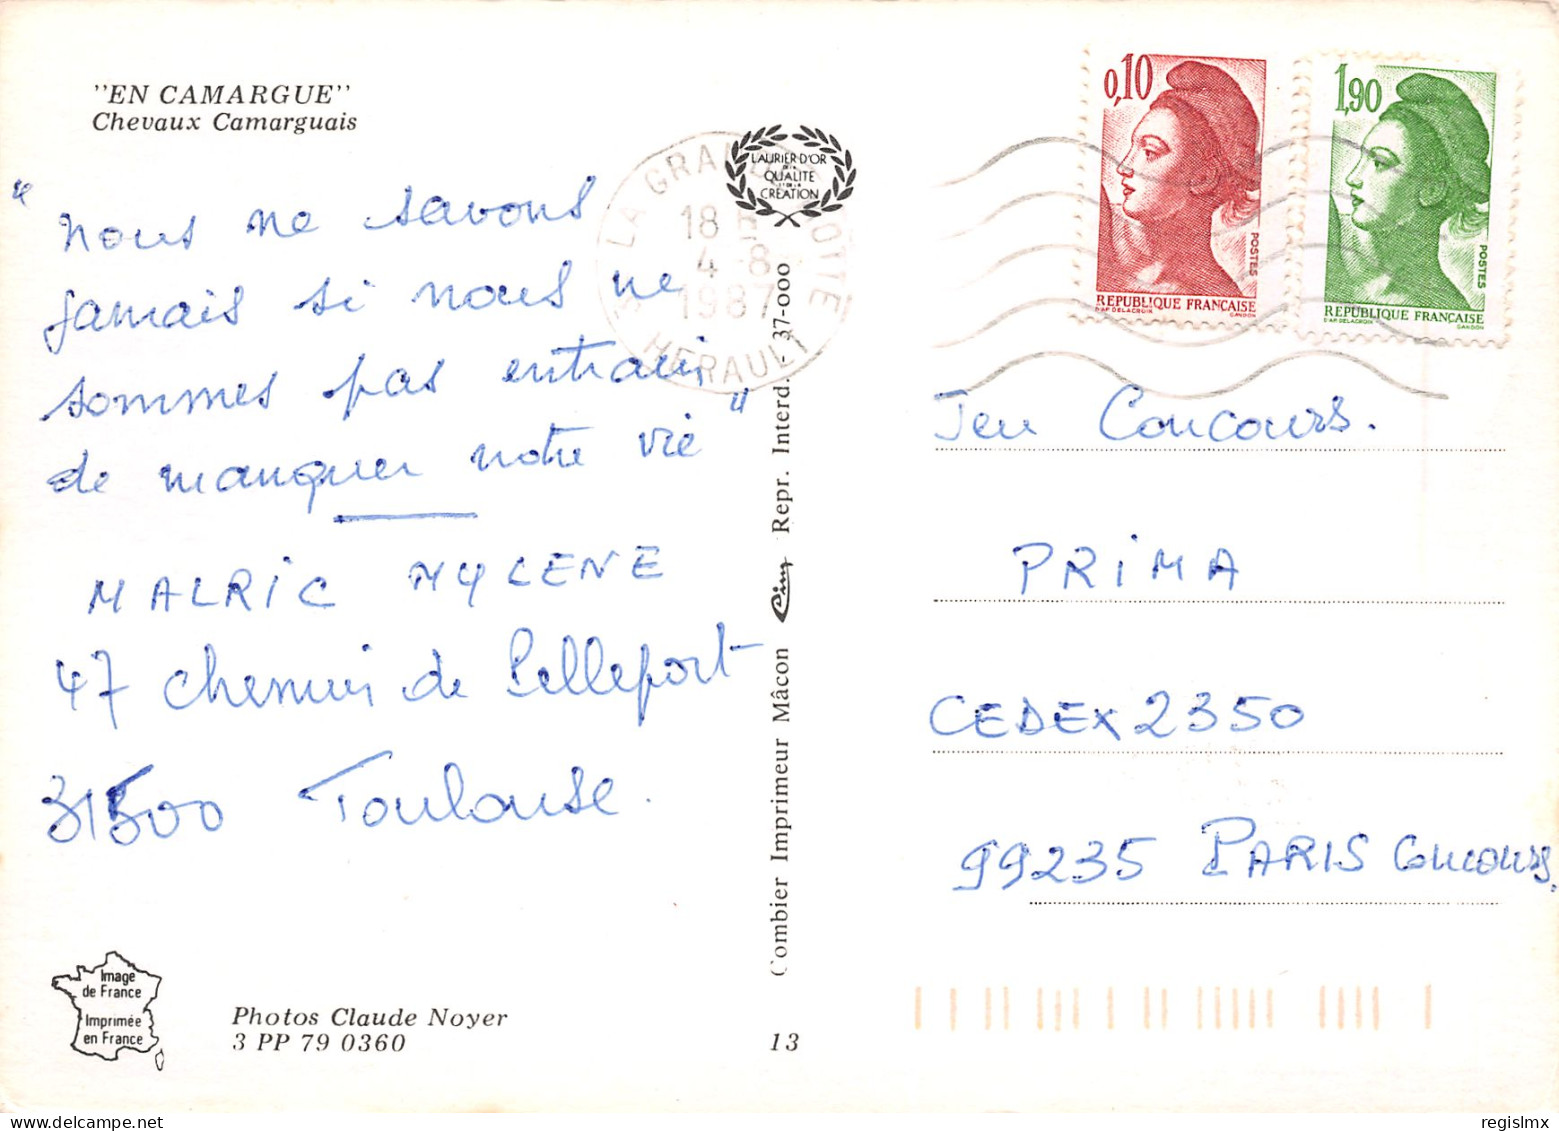 "EN CAMARGUE"
Chevaux Camarguais
" nous ne savons
jamais si nous ne
sommes pas entrain
de manquer notre vie "
MALRIC MYLENE
47 chemin de Pellefort
31500 Toulouse.
Image
de France
Imprimée
en France
Photos Claude Noyer
3 PP 79 0360
LAURIER D'OR
DE LA
QUALITÉ
ET DE LA
CRÉATION
18 H
4-8
1987
HERAULT
Combier Imprimeur Mâcon Cim Repr. Interd. 37-000
13
0,10
POSTES
REPUBLIQUE FRANÇAISE
D'AP DELACROIX GANDON
1,90
POSTES
REPUBLIQUE FRANÇAISE
D'AP DELACROIX GANDON
Jeu Concours.
PRIMA
CEDEX 2350
99235 PARIS Concours.
regislmx